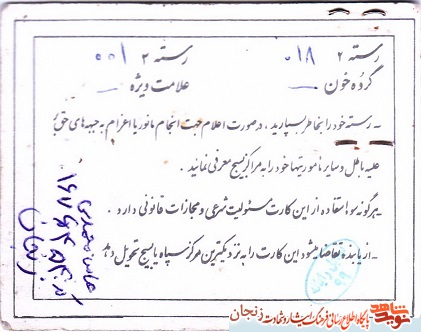 رسته ۲ ۰۱۸
رسته ۲ ۰۰۱
گروه خون —
علامت ویژه —
- رسته خود را بخاطر بسپارید، در صورت اعلام جهت انجام مانور یا اعزام به جبهه‌های حق بر
علیه باطل و سایر مأموریتها خود را به مراکز بسیج معرفی نمائید.
- هرگونه سوء استفاده از این کارت مسئولیت شرعی و مجازات قانونی دارد.
- از یابنده تقاضا میشود این کارت را به نزدیکترین مرکز سپاه یا بسیج تحویل دهد
عباس محمدی
زنجان
نوید شاهد
پایگاه اطلاع رسانی فرهنگ ایثار و شهادت زنجان